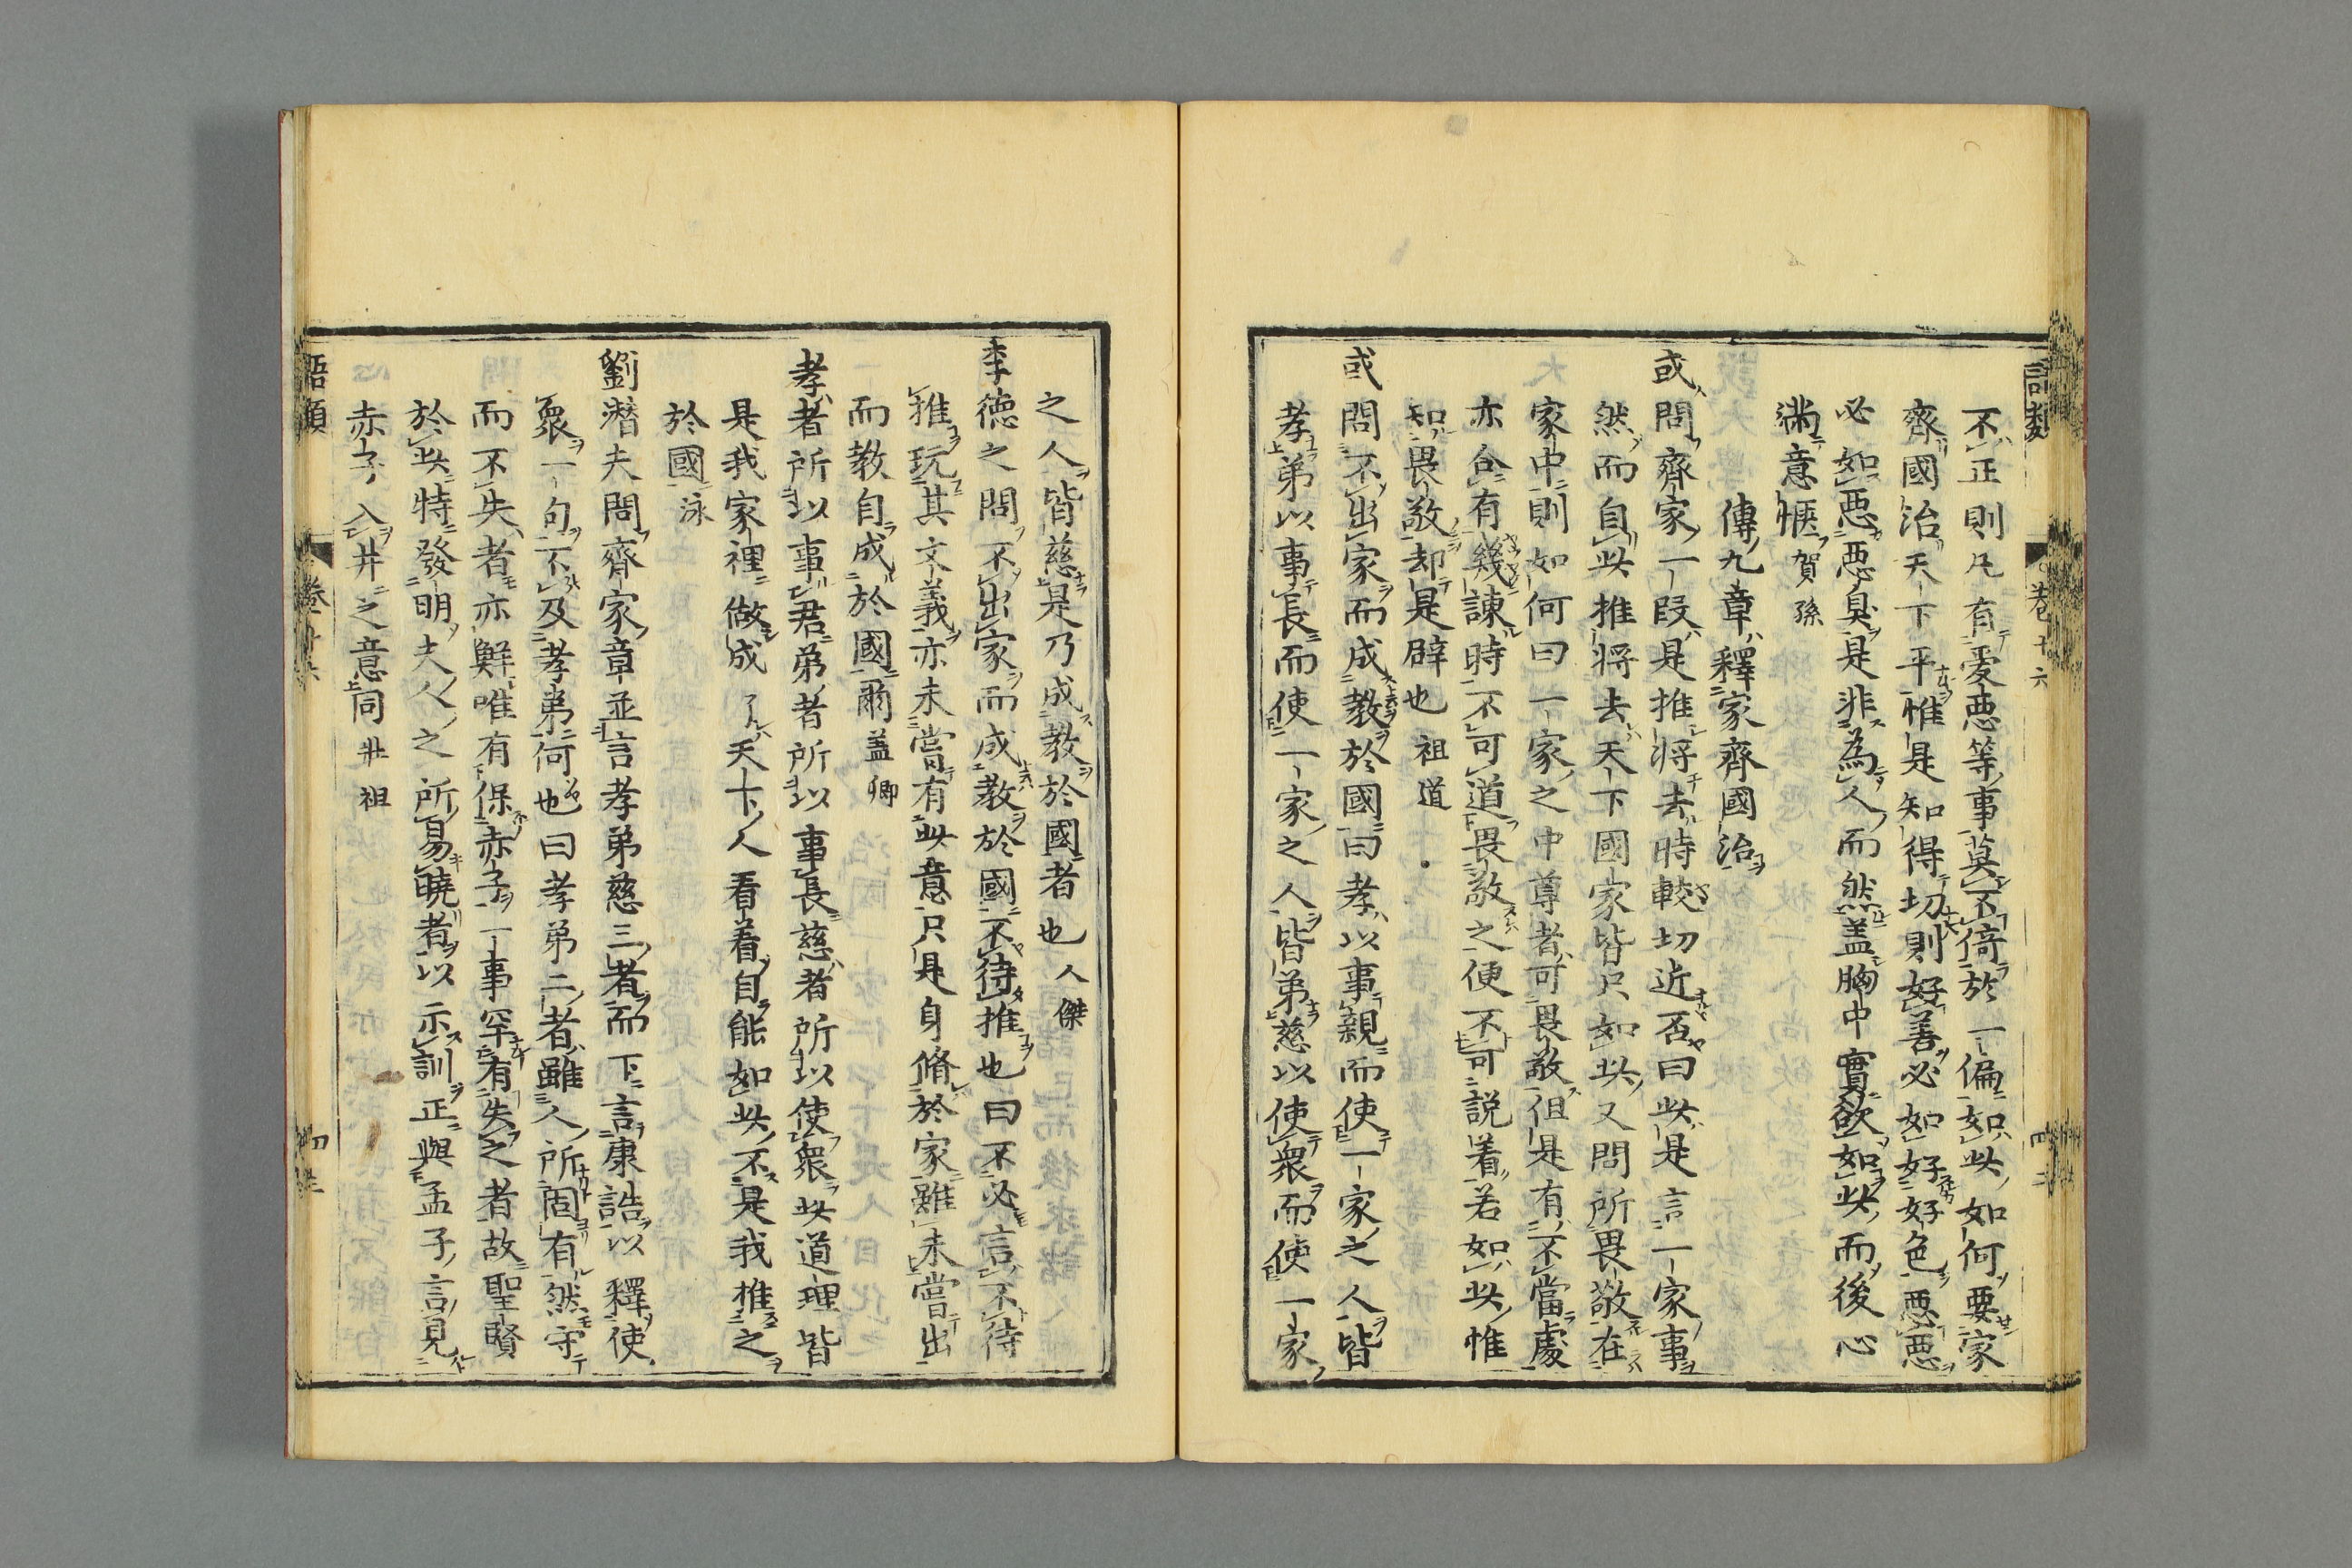 語類
卷十六
不正則凡有愛惡等事莫不倚於一偏如此如何要家
齊國治天下平惟是知得切則好善必如好好色惡惡
必如惡惡臭是非為人而然蓋胸中實欲如此而後心
滿意愜賀孫
傳九章釋家齊國治
或問齊家一段是推將去時較切近否曰此是言一家事
然而自此推將去天下國家皆只如此又問所畏敬在
家中則如何曰一家之中尊者可畏敬但是有不當處
亦合有幾諫時不可道畏敬之便不可説着若如此惟
知畏敬却是辟也祖道
或問不出家而成教於國曰孝以事親而使一家之人皆
孝弟以事長而使一家之人皆弟慈以使衆而使一家
之人皆慈是乃成教於國者也人傑
李德之問不出家而成教於國不待推也曰不必言不待
推玩其文義亦未嘗有此意只是身脩於家雖未嘗出
而教自成於國爾蓋卿
孝者所以事君弟者所以事長慈者所以使衆此道理皆
是我家裡做成了天下人看着自能如此不是我推之
於國泳
劉潛夫問齊家章並言孝弟慈三者而下言康誥以釋使
衆一句不及孝弟何也曰孝弟二者雖人所固有然守
而不失者亦鮮唯有保赤子一事罕有失之者故聖賢
於此特發明夫人之所易曉者以示訓正與孟子言見
赤子入井之意同壯祖
語類
卷十六